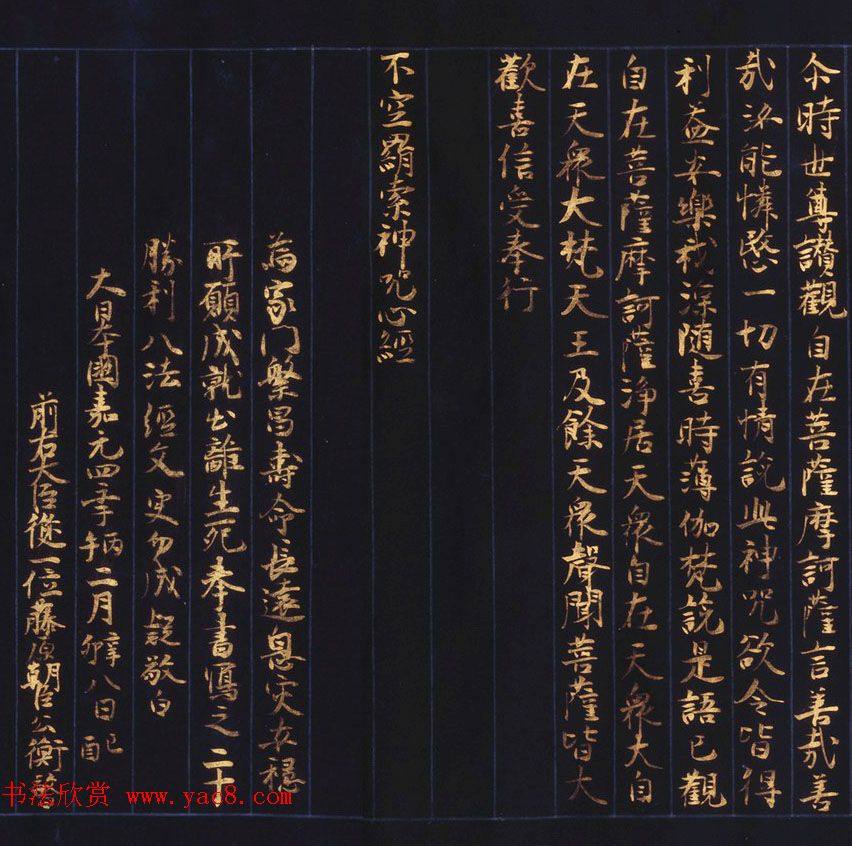 尒時世尊讃觀自在菩薩摩訶薩言善哉善
哉汝能憐愍一切有情說此神咒欲令皆得
利益安樂我深随喜時薄伽梵說是語已觀
自在菩薩摩訶薩淨居天衆自在天衆大自
在天衆大梵天王及餘天衆聲聞菩薩皆大
歡喜信受奉行
不空羂索神咒心經
為家門繁昌壽命長遠息灾安穩
所願成就出離生死奉書寫之二十
勝利八法經文更勿成疑敬白
大日本國嘉元四年丙午二月辛卯八日己酉
前右大臣從一位藤原朝臣公衡
书法欣赏 www.yac8.com